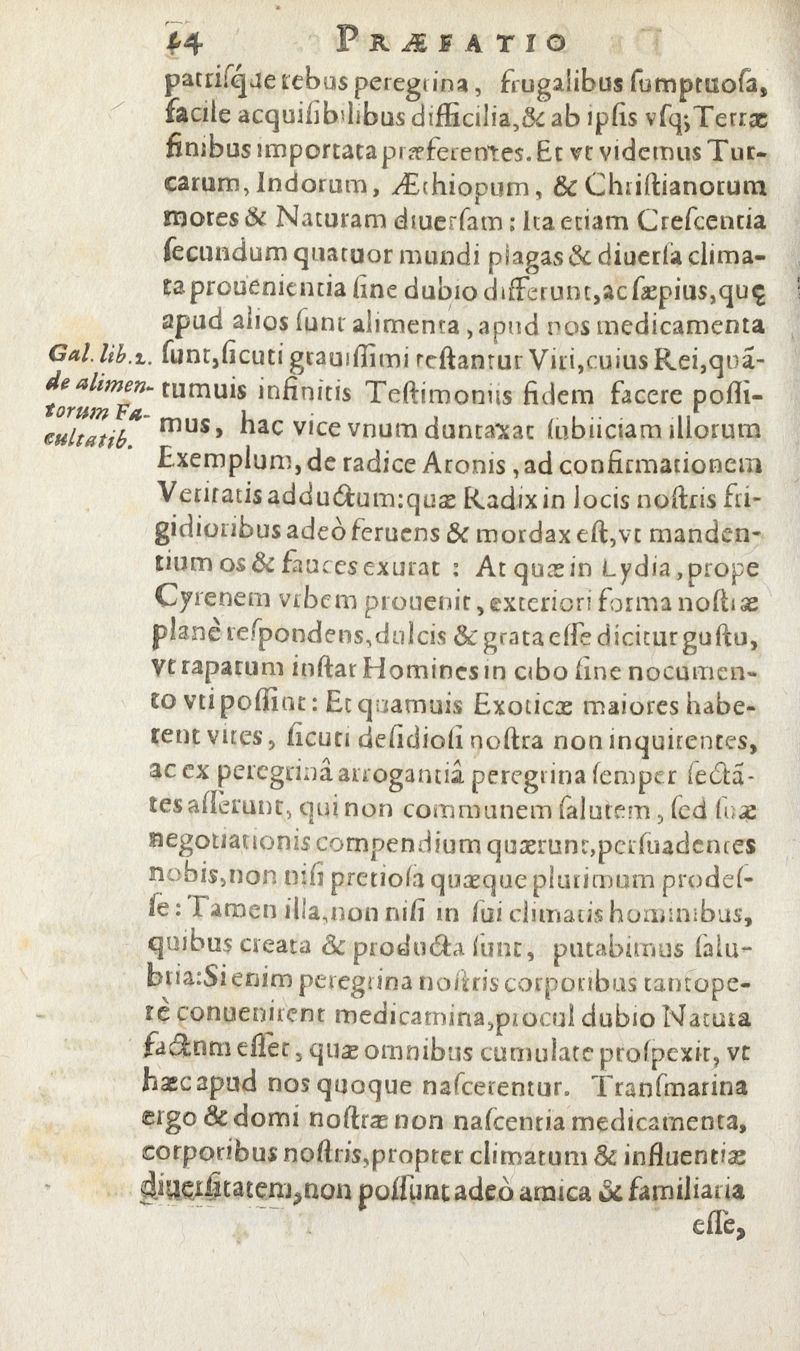 14 PRÆFATIO
patrisq́ue rebus peregrina, frugalibus sumptuosa,
facile acquisibilibus difficilia,& ab ipsis vsq; Terræ
finibus importata præferentes. Et vt videmus Tur-
carum, Indorum, Æthiopum, & Christianorum
mores & Naturam diuersam: Ita etiam Crescentia
secundum quatuor mundi plagas & diuersa clima-
ta prouenientia sine dubio differunt, ac sæpius, quę
apud alios sunt alimenta, apud nos medicamenta
Gal. lib. 2. sunt, sicuti grauissimi testantur Viri, cuius Rei, quā-
de alimen- tumuis infinitis Testimoniis fidem facere possi-
torum Fa-
cultatib. mus, hac vice vnum duntaxat subiiciam illorum
Exemplum, de radice Aronis, ad confirmationem
Veritatis adductum: quæ Radix in locis nostris fri-
gidioribus adeò feruens & mordax est, vt manden-
tium os & fauces exurat : At quæ in Lydia, prope
Cyrenem vrbem prouenit, exteriori forma nostræ
planè respondens, dulcis & grata esse dicitur gustu,
vt raparum instar Homines in cibo sine nocumen-
to vti possint: Et quamuis Exoticæ maiores habe-
rent vires, sicuti desidiosi nostra non inquirentes,
ac ex peregrinâ arrogantiâ peregrina semper sectā-
tes asserunt, qui non communem salutem, sed suæ
negotiationis compendium quærunt, persuadentes
nobis, non nisi pretiosa quæque plurimum prodes-
se: Tamen illa, non nisi in sui climatis hominibus,
quibus creata & producta sunt, putabimus salu-
bria: Si enim peregrina nostris corporibus tantope-
rè conuenirent medicamina, procul dubio Natura
factum esset, quæ omnibus cumulate prospexit, vt
hæc apud nos quoque nascerentur. Transmarina
ergo & domi nostræ non nascentia medicamenta,
corporibus nostris, propter climatum & influentiæ
diuersitatem, non possunt adeò amica & familiaria
esse,